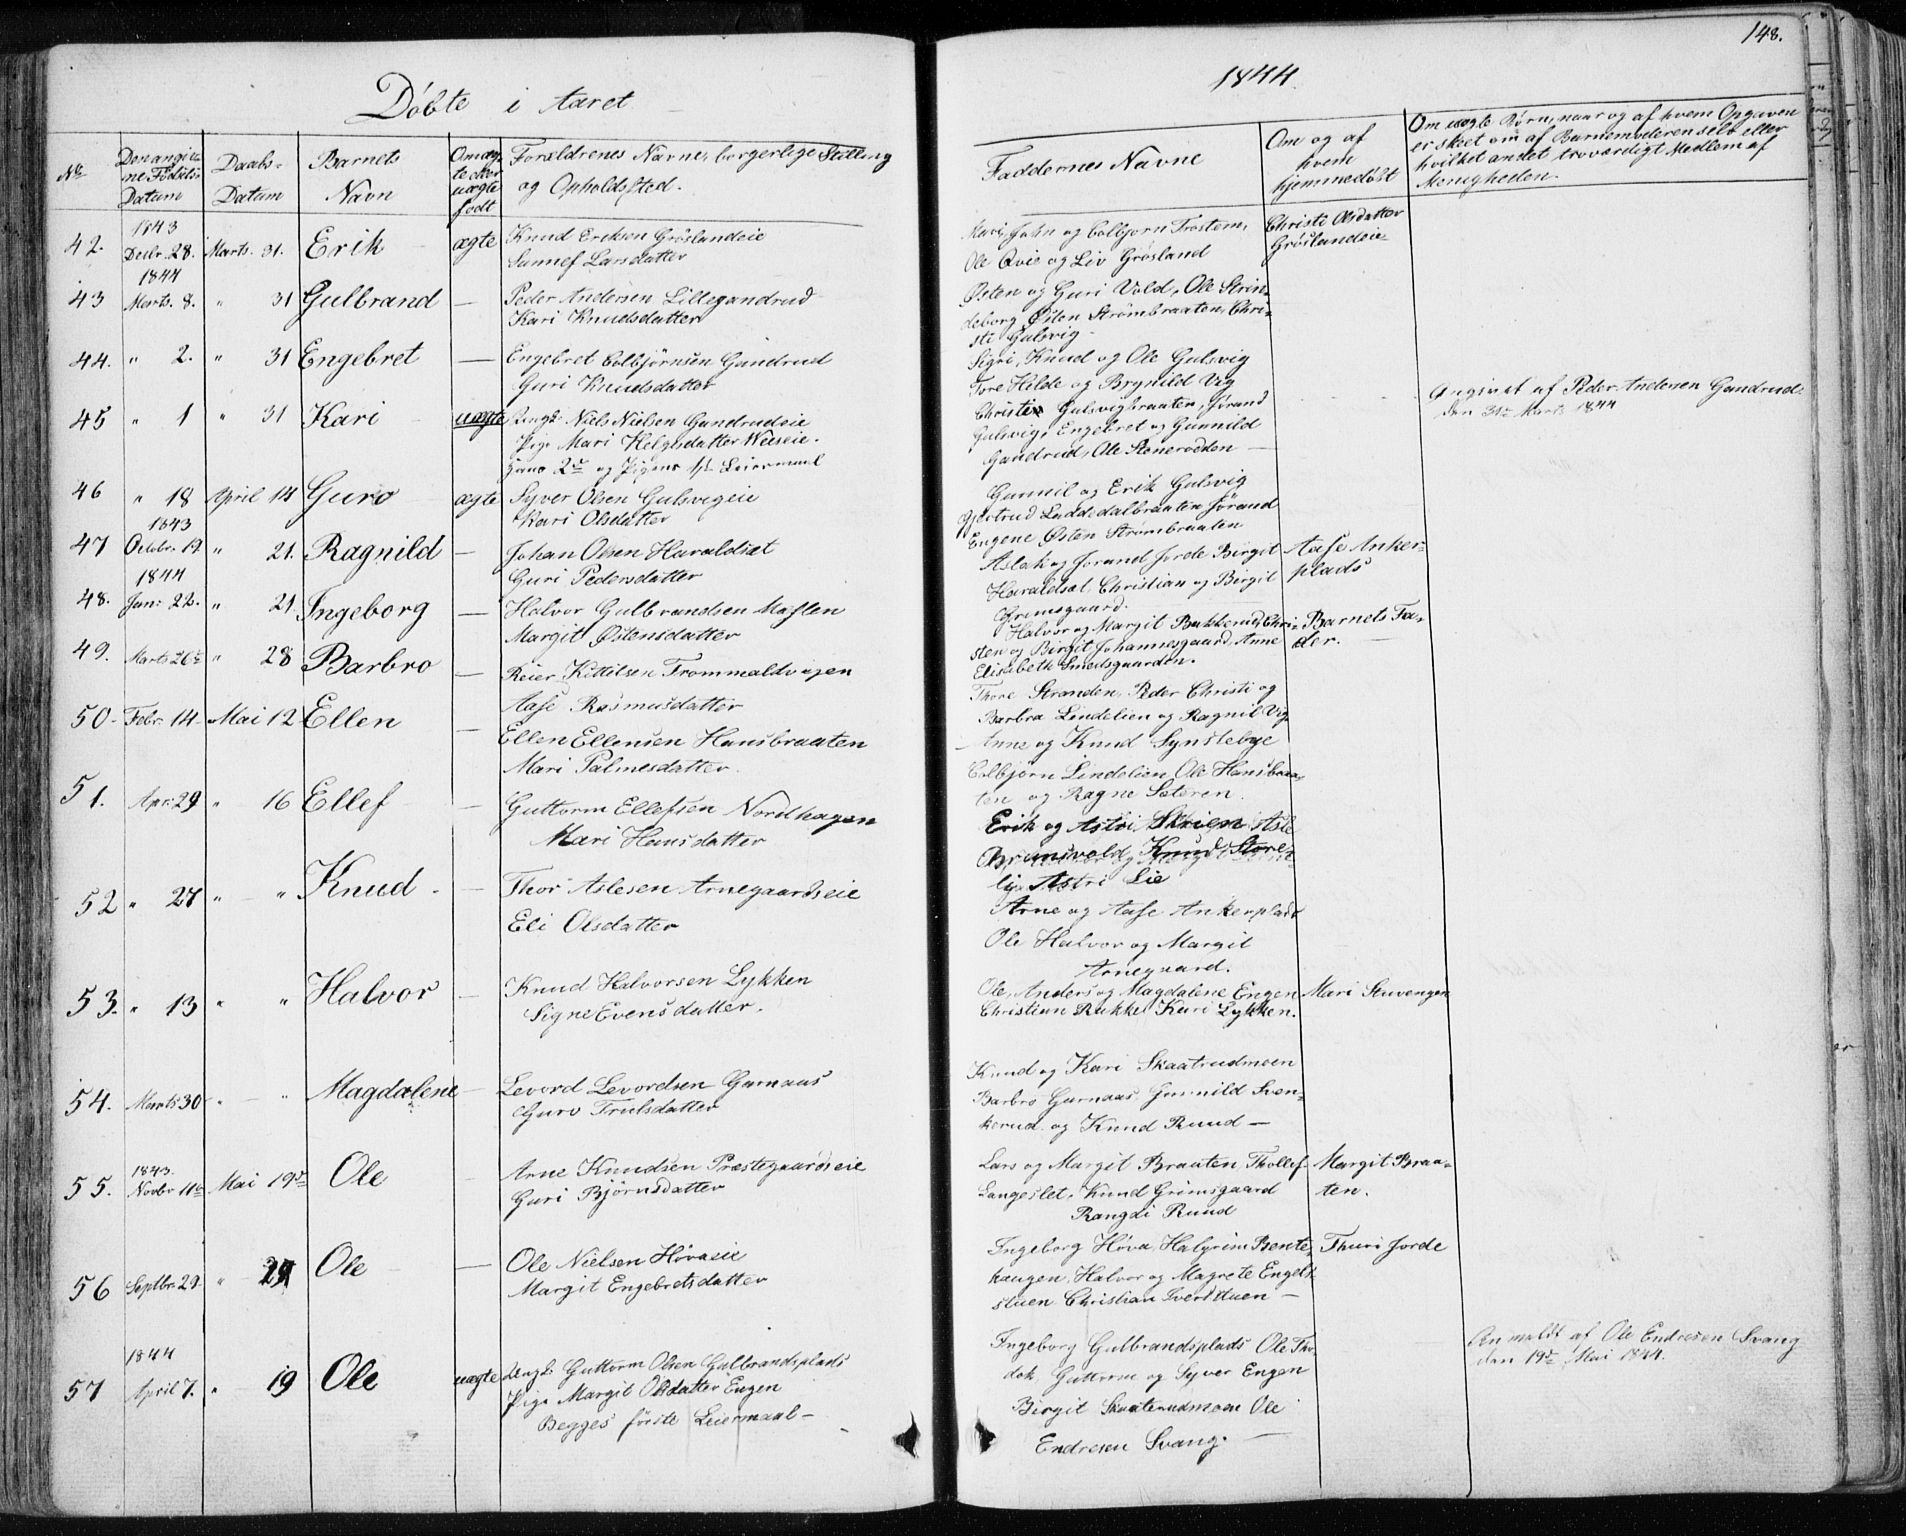 148.
Døbte i Aaret
1844.
No
Den angivne Fødsels Datum
Daabs-Datum
Barnets Navn
Om ægte eller uægte født
Forældrenes Navne, borgerlige Stilling og Opholdssted.
Faddernes Navne
Om og af hvem hjemmedøbt
Om uægte Børn, naar og af hvem Opgaven er skeet om af Barnemoderen selv eller hvilket andet troværdigt Medlem af Menigheden.
42. 1843 Decbr. 28. Marts. 31. Erik ægte Knud Eriksen Grøslandeie
Sunnef Larsdatter
Mari, John og Colbjørn Trostem,
Ole Qvie og Liv Grøsland
Christi Olsdatter
Grøslandeie
43 1844 Marts. 8. " 31 Gulbrand — Peder Andersen Lillegandrud
Kari Knudsdatter
Østen og Guri Vold, Ole Strin-
deborg Østen Strømbraaten, Chri-
ste Gulsvig
44. " 2. " 31 Engebret — Engebret Colbjørnsen Gandrud
Guri Knudsdatter
Sigri, Knud og Ole Gulsvig
Tore Hilde og Brynild Vig
45 " 1 " 31 Kari uægte Ungk: Niels Nielsen Gandrudeie
Pige Mari Helgesdatter
2de og Pigens 1ste Leiermaal
Christi Gulsvigbraaten, Jørand
Gulsvig, Engebret og Gunnild
Gandrud, Ole Stenerodden —
Angivet af Peder Andersen Gandrud
den 31te Marts 1844
46 " 18 April 14 Guro ægte Syver Olsen Gulsvigeie
Kari Olsdatter
Gunnil og Erik Gulsvig
Gjertrud Luddedalbraaten Jørand
Eugene Østen Strømbraaten
47 1843 Octobr. 19. " 21. Ragnild — Johan Olsen Haraldset
Guri Pedersdatter
Aslak og Jorand Jorde Birgit
Haraldset, Christian og Birgit
Grimsgaard.
Aase Anker-
plads
48. 1844 Jan: 22. " 21. Ingeborg — Halvor Gulbrandsen Moflen
Margit Østensdatter
Halvor og Margit Bakkerud, Chri-
sten og Birgit Johannesgaard, Anne
Elisabeth Smedsgaarden.
Barnets Fa-
der. —
49. Marts 26de " 28 Barbro — Reier Kittilsen Trommaldvigen
Aase Rasmusdatter
Thore Stranden, Peder Christi og
Barbra Lindelien og Ragnil Vig
50. Febr. 14 Mai 12 Ellen — Ellen Ellensen Hansbraaten
Mari Palmesdatter.
Anne og Knud Synstebye
Colbjørn Lindelien Ole Hansbraa-
ten og Ragne Sæteren.
51. Apr. 29 " 16 Ellef — Guttorm Ellefsen Nordhagen
Mari Hansdatter
Erik og Astri Skrien Asle
Grunsvold, Knud Store-
lie Astri Lie
52 " 27 " — " Knud — Thor Aslesen Arnegaardseie
Eli Olsdatter
Arne og Aase Ankerplads
Ole Halvor og Margit
Arnegaard.
53. " 13 " " Halvor — Knud Halvorsen Lykken
Signe Evensdatter.
Ole, Anders og Magdalene Engen
Christian Rukke Kari Lykken.
Mari Stuvengen
54. Marts 30 " — " Magdalene — Levord Levordsen Garnaas
Guro Trulsdatter
Knud og Kari Skaatrudmoen
Barbro Garnaas Gunnild Sven-
kerud og Knud Ruud —
55. 1843. Novbr 11te Mai 19de Ole — Arne Knudsen Præstegaardseie
Guri Bjørnsdatter
Lars og Margit Braaten Thollef
Langeslet, Knud Grimsgaard
Rangdi Ruud
Margit Braa-
ten.
56 Septbr. 29 " Ole — Ole Nielsen Høvaeie
Margit Engebretsdatter
Ingeborg Høva, Halgrim Bente-
haugen, Halvor og Magrete Engel-
stuen Christian Iverstuen —
Thuri Jorde
57 1844 April 7. " 19 Ole uægte Ungk: Guttorm Olsen Gulbrandsplads
Pige Margit Olsdatter Engen
Begges første Leiermaal —
Ingeborg Gulbrandsplads Ole Tho-
dok, Guttorm og Syver Engen
Birgit Skaaterudmoen Ole
Endresen Svang. —
Anmeldt af Ole Endresen Svang
den 19de Mai 1844.